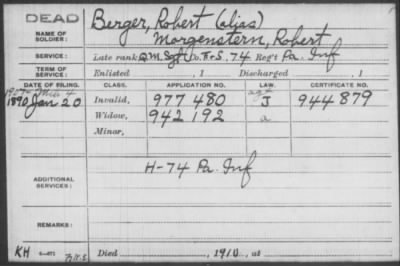 DEAD
NAME OF SOLDIER:
Berger, Robert (alias)
Morgenstern, Robert
SERVICE:
Late rank Q.M. Sgt, Co. F&S, 74 Reg't Pa. Inf
TERM OF SERVICE:
Enlisted , 1 Discharged , 1
DATE OF FILING. CLASS. APPLICATION NO. LAW. CERTIFICATE NO.
1890 Jan 20 Invalid, 977 480 J 944 879
Widow, 942 192 a
Minor,
ADDITIONAL SERVICES:
H-74 Pa. Inf
REMARKS:
KH
Died , 1910, at